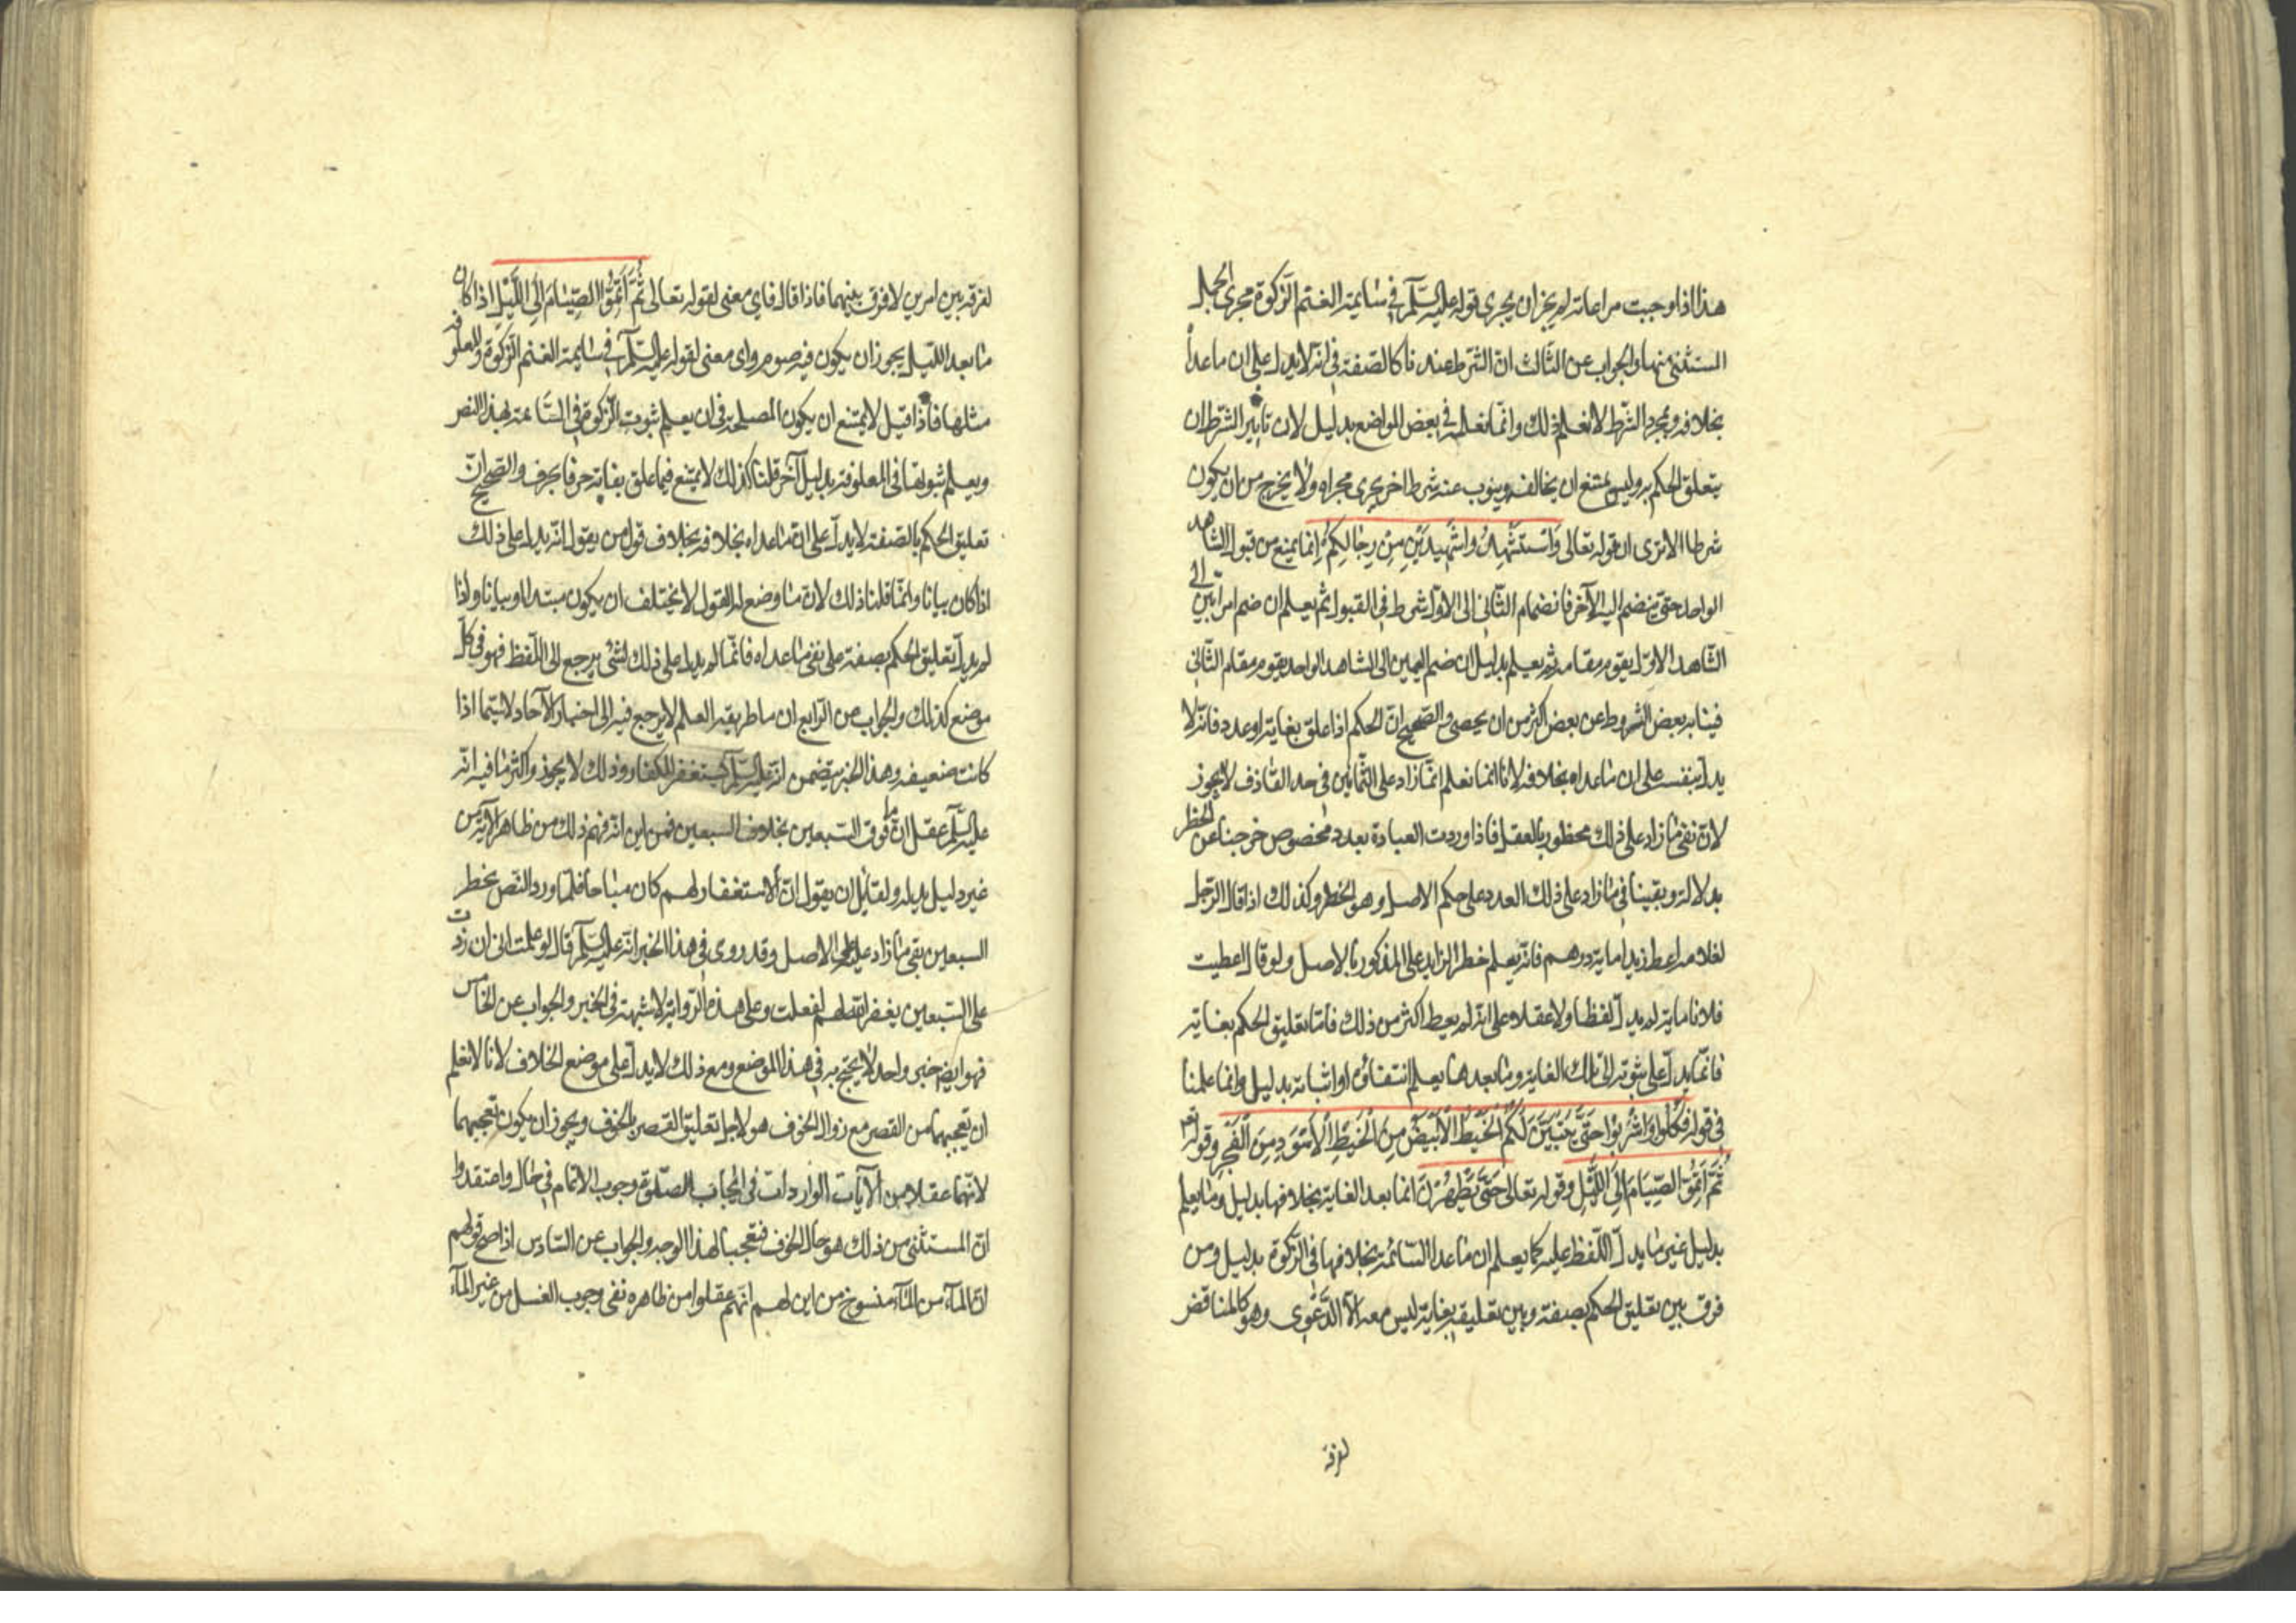 هذا اذا وجبت مراعاته لم يجز ان يجري قوله عليه السلم في سائمة الغنم الزكوة مجرى الجملة
المستثنى منها والجواب عن الثالث ان الشرط عندنا كالصفة في انه لا يدل على ان ما عداه
بخلافه وبمجرد الشرط لا نعلم ذلك وانما نعلمه في بعض المواضع بدليل لان تاثير الشرط ان
يتعلق الحكم به وليس يمتنع ان يخالفه وينوب عنه شرط اخر يجري مجراه ولا يخرج من ان يكون
شرطا الا ترى ان قوله تعالى وَاسْتَشْهِدُوا شَهِيدَيْنِ مِنْ رِجَالِكُمْ انما يمنع من قبول الشاهد
الواحد حتى ينضم اليه الآخر فانضمام الثاني الى الاول شرط في القبول ثم يعلم ان ضم امراتين الى
الشاهد الاول يقوم مقامه ثم يعلم بدليل ان ضم اليمين الى الشاهد الواحد يقوم مقام الثاني
فنيابة بعض الشروط عن بعض اكثر من ان يحصى والصحيح ان الحكم اذا علق بغاية او عدد فانه لا
يدل بنفسه على ان ما عداه بخلافه لانا انما نعلم ان ما زاد على الثمانين في حد القاذف لا يجوز
لان نفي ما زاد على ذلك محظور بالعقل فاذا وردت العبادة بعدد مخصوص خرجنا عن الحظر
بدلالة وبقينا في ما زاد على ذلك العدد على حكم الاصل وهو الحظر وكذلك اذا قال الرجل
لغلامه اعط زيدا ماية درهم فانه يعلم حظر الزايد على المذكور بالاصل ولو قال اعطيت
فلانا ماية لم يدل لفظا ولا عقلا على انه لم يعط اكثر من ذلك فاما تعليق الحكم بغاية
فانما يدل على ثبوته الى تلك الغاية وما بعدها يعلم انتفاؤه او اثباته بدليل وانما علمنا
في قوله فَكُلُوا وَاشْرَبُوا حَتَّى يَتَبَيَّنَ لَكُمُ الْخَيْطُ الْأَبْيَضُ مِنَ الْخَيْطِ الْأَسْوَدِ مِنَ الْفَجْرِ وقوله تعه
ثُمَّ أَتِمُّوا الصِّيَامَ إِلَى اللَّيْلِ وقوله تعالى حَتَّى يَطْهُرْنَ ان ما بعد الغاية بخلافها بدليل وما يعلم
بدليل غير ما يدل اللفظ عليه كما يعلم ان ما عدا السائمة بخلافها في الزكوة بدليل ومن
فرق بين تعليق الحكم بصفة وبين تعليقه بغاية ليس معه الا الدعوى وهو كالمناقض
لفرقه
لفرقه بين امرين لا فرق بينهما فاذا قال فاي معنى لقوله تعالى ثُمَّ أَتِمُّوا الصِّيَامَ إِلَى اللَّيْلِ اذا كان
ما بعد الليل يجوز ان يكون فيه صوم واي معنى لقوله عليه السلم في سائمة الغنم الزكوة والمعلوفة
مثلها فاذا قيل لا يمتنع ان يكون المصلحة في ان يعلم ثبوت الزكوة في السائمة بهذا النص
ويعلم ثبوتها في المعلوفة بدليل آخر قلنا كذلك لا يمتنع فيما علق بغاية حرفا بحرف والصحيح ان
تعليق الحكم بالصفة لا يدل على ان ما عداه بخلافه بخلاف قول من يقول انه يدل على ذلك
اذا كان بيانا وانما قلنا ذلك لان ما وضع له القول لا يختلف ان يكون مبتدا او بيانا واذا
لم يدل تعليق الحكم بصفة على نفي ما عداه فانما لم يدل على ذلك لشئ يرجع الى اللفظ فهو في كل
موضع كذلك والجواب عن الرابع ان ما طريقه العلم لا يرجع فيه الى اخبار الآحاد لا سيما اذا
كانت ضعيفة وهذا الخبر يتضمن انه عليه السلم يستغفر للكفار وذلك لا يجوز واكثر ما فيه انه
عليه السلم عقل ان ما فوق السبعين بخلاف السبعين فمن اين انه فهم ذلك من ظاهر الآية من
غير دليل يدله ولقائل ان يقول ان الاستغفار لهم كان مباحا فلما ورد النص بحظر
السبعين بقي ما زاد عليه على الاصل وقد روى في هذا الخبر انه عليه السلم قال لو علمت اني ان زدت
على السبعين يغفر الله لهم لفعلت وعلى هذه الرواية لا شبهة في الخبر والجواب عن الخامس
فهو ايضا خبر واحد لا يحتج به في هذا الموضع ومع ذلك لا يدل على موضع الخلاف لانا لا نعلم
ان تعجبهما من القصر مع زوال الخوف هو لاجل تعليق القصر بالخوف ويجوز ان يكون تعجبهما
لانهما عقلا من الآيات الواردات في ايجاب الصلوة وجوب الاتمام في حال واعتقدوا
ان المستثنى من ذلك هو حال الخوف فتعجبا لهذا الوجه والجواب عن السادس اذا صح قولهم
ان الماء من الماء منسوخ من اين لهم انهم عقلوا من ظاهره نفي وجوب الغسل من غير الماء